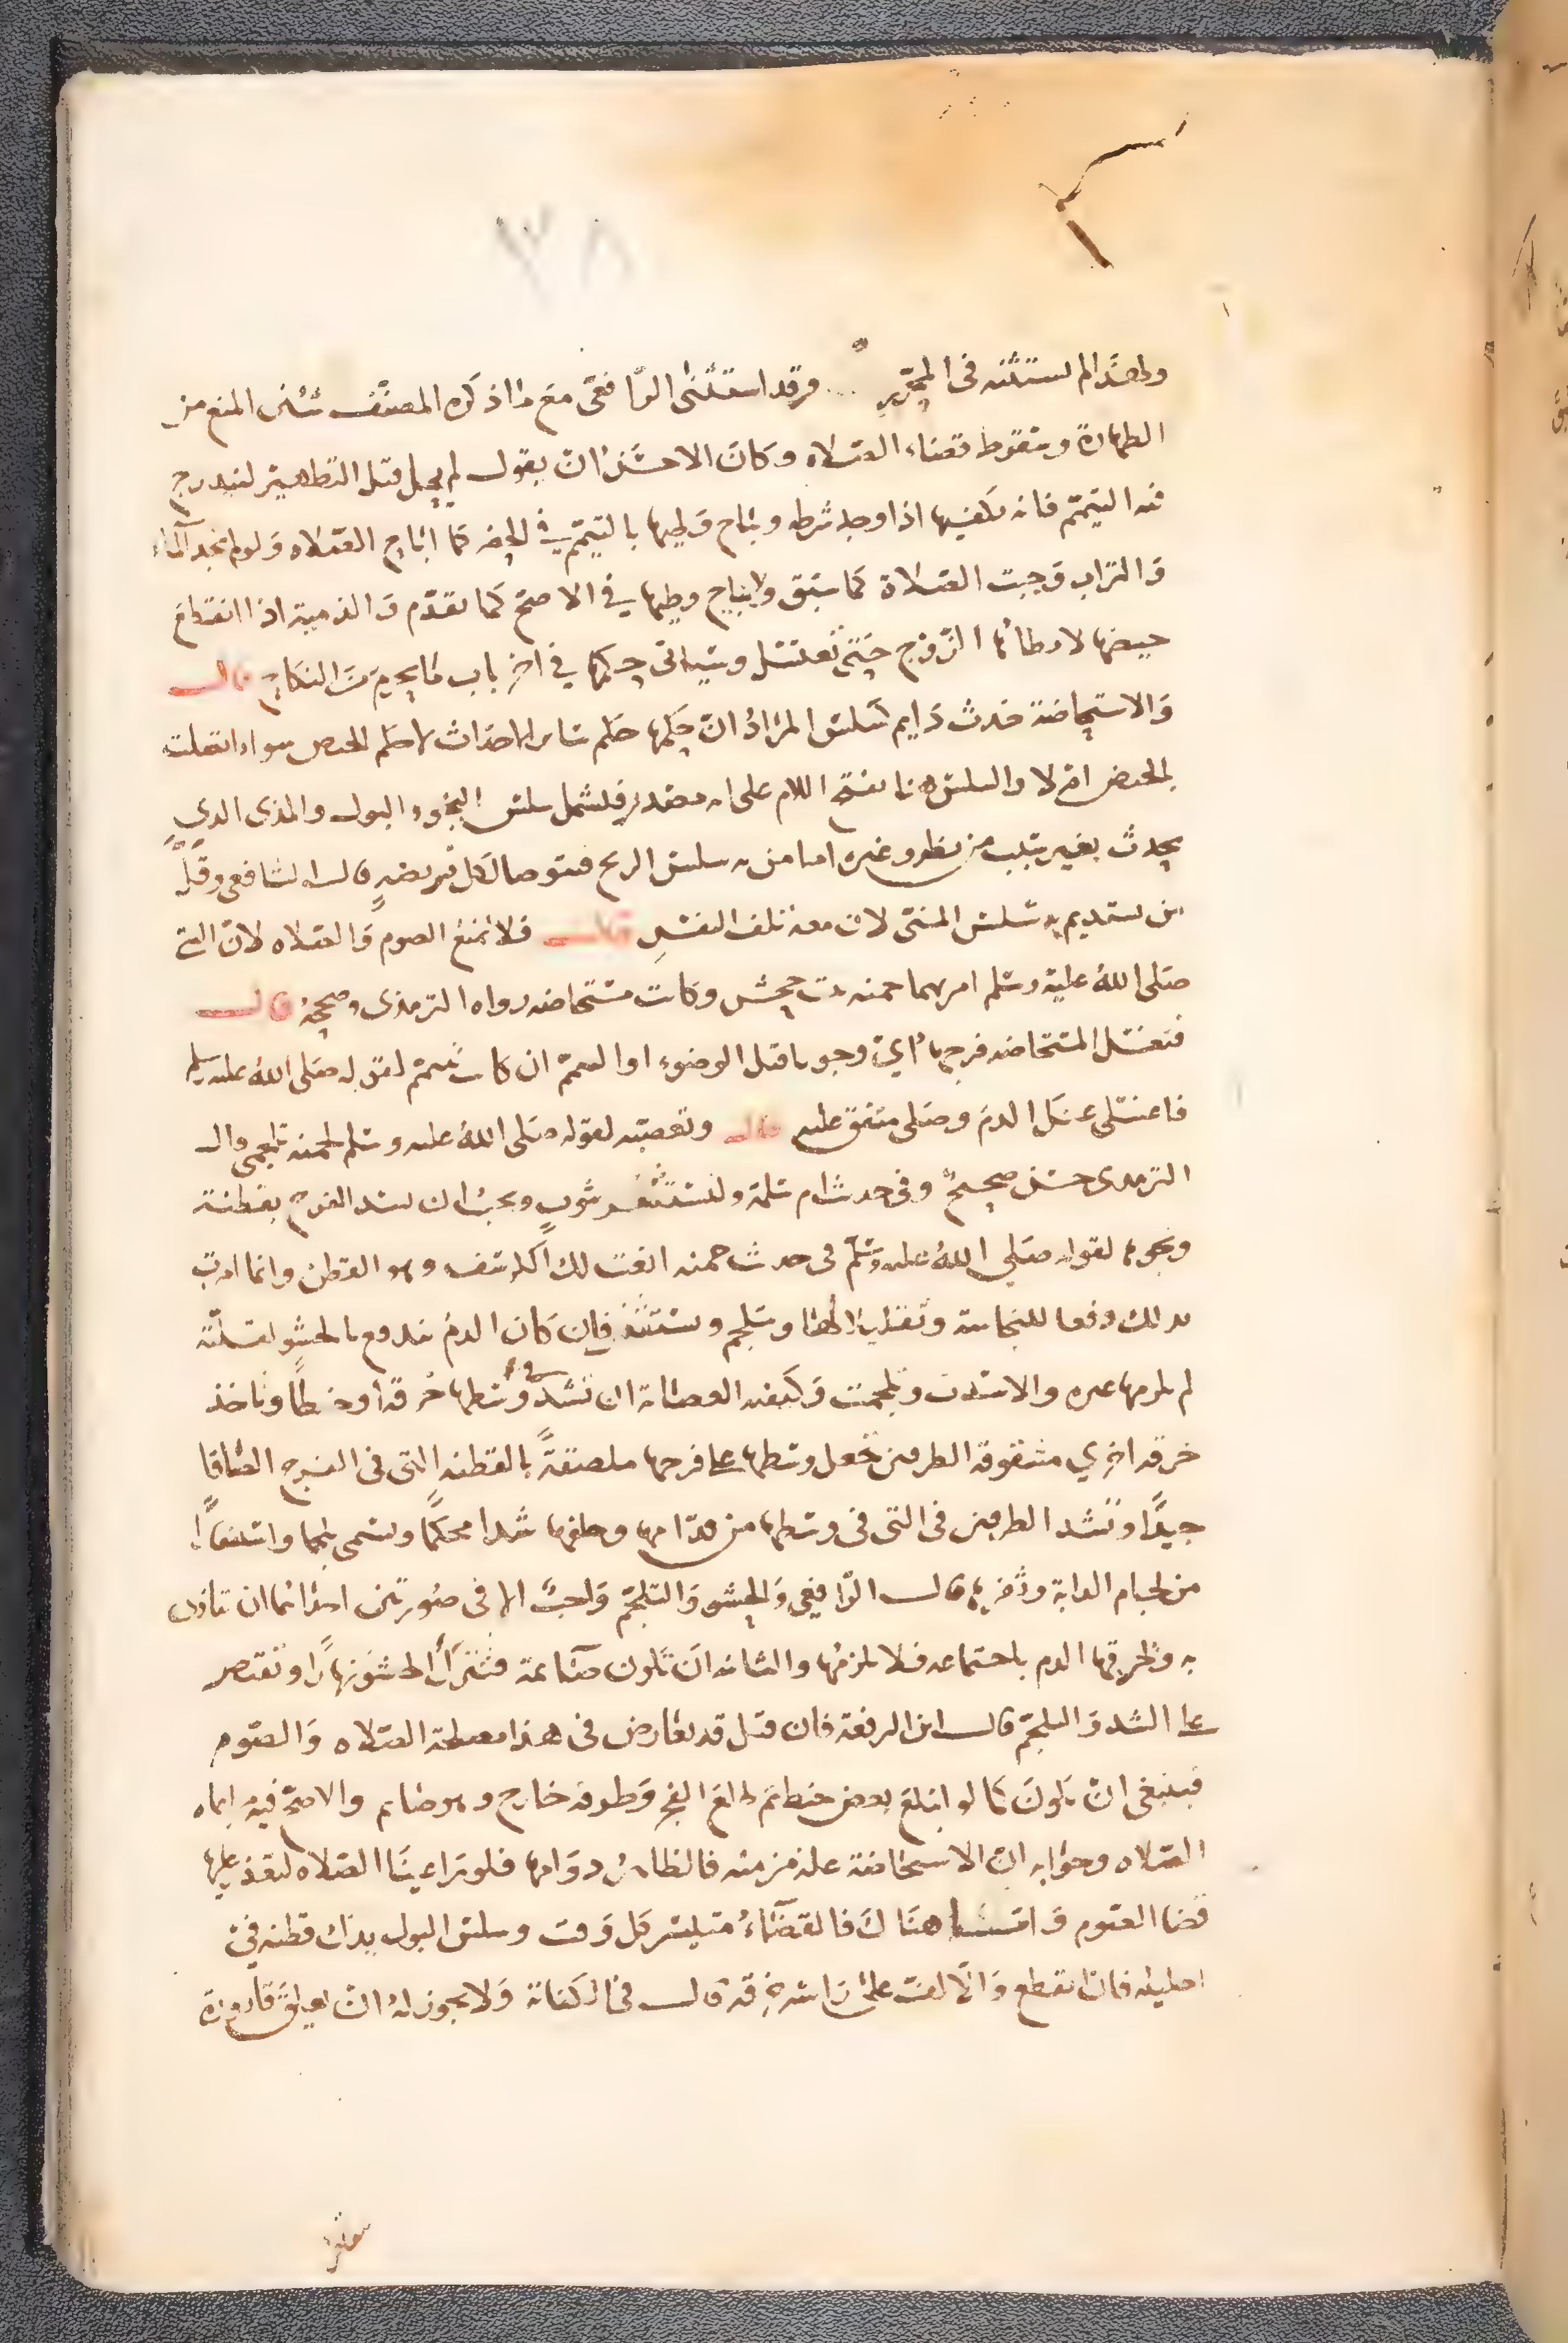 ٣٨
ولهذا لم يستثنه في المحرر وقد استثنى الرافعي مع ما ذكره المصنف شيئين المنع من
الطهارة وسقوط قضاء الصلاه وكان الاحسن ان يقول لم يحل قبل التطهير ليندرج
فيه التيمم فانه يكفيها اذا وجد شرطه ويباح وطيها بالتيمم في الحضر كما اباح الصلاه ولو لم تجد الماء
والتراب وجبت الصلاة كما سبق ولا يباح وطيها في الاصح كما تقدم والذمية اذا انقطع
حيضها لا يطأها الزوج حتى تغتسل وسيأتي حكمها في اخر باب ما يحرم من النكاح قال
والاستحاضة حدث دايم كسلس المراد ان حكمها حكم سائر الاحداث لا حكم الحيض سواء اتصلت
بالحيض ام لا والسلس هنا بفتح اللام على انه مصدر فيشمل سلس النجو والبول والمذى الذي
يحدث بغير سبب من نظر وغيره اما من به سلس الريح فيتوضا لكل فريضة قال الشافعي وقل
من يستديم به سلس المني لان معه تلف النفس قال فلا تمنع الصوم والصلاه لان النبي
صلى الله عليه وسلم امر بهما حمنه بنت جحش وكانت مستحاضه رواه الترمذى وصححه قال
فتغسل المستحاضه فرجها اي وجوبا قبل الوضوء او التيمم ان كانت تتيمم لقوله صلى الله عليه وسلم
فاغسلي عنك الدم وصلى متفق عليه قال وتعصبه لقوله صلى الله عليه وسلم لحمنه تلجمي قال
الترمدى حسن صحيح وفى حديث ام سلمة ولتستثفر بثوب ويجب ان تسد الفرج بقطنة
ونحوها لقوله صلى الله عليه وسلم فى حديث حمنه انعت لك الكرسف وهو القطن وانما امرت
بذلك دفعا للنجاسة وتقليلا لها وتتلجم وتستثفر فان كان الدم يندفع بالحشو لقلته
لم يلزمها غيره والا شدت وتلجمت وكيفيه العصابة ان تشد في وسطها خرقة او خيطا وتاخذ
خرقه اخرى مشقوقة الطرفين تجعل وسطها على فرجها ملصقة بالقطنه التى فى الفرج الصاقا
جيدا وتشد الطرفين فى التى فى وسطها من قدامها وخلفها شدا محكما ويسمى تلجما واستثفارا
من لجام الدابة وثفرها قال الرافعي والحشو والتلجم واجب الا فى صورتين احداهما ان تتاذى
به ويحرقها الدم باجتماعه فلا يلزمها والثانيه ان تكون صائمة فتترك الحشو نهارا وتقتصر
على الشد والتلجم قال ابن الرفعة فان قيل قد تعارض فى هذا مصلحة الصلاه والصوم
فينبغى ان يكون كما لو ابتلع بعض خيط ثم طلع الفجر وطرفه خارج وهو صايم والاصح فيه
الصلاه وجوابه ان الاستحاضة علة مزمنه فالظاهر دوامها فلو راعينا الصلاه لتعذر عليها
قضا الصوم هناك فالقضاء متيسر كل وقت وسلس البول يدخل قطنه في
احليله فان انقطع والا لفت على راسه خرقة قال فى الكفاية ولا يجوز له ان يعلق قارورة